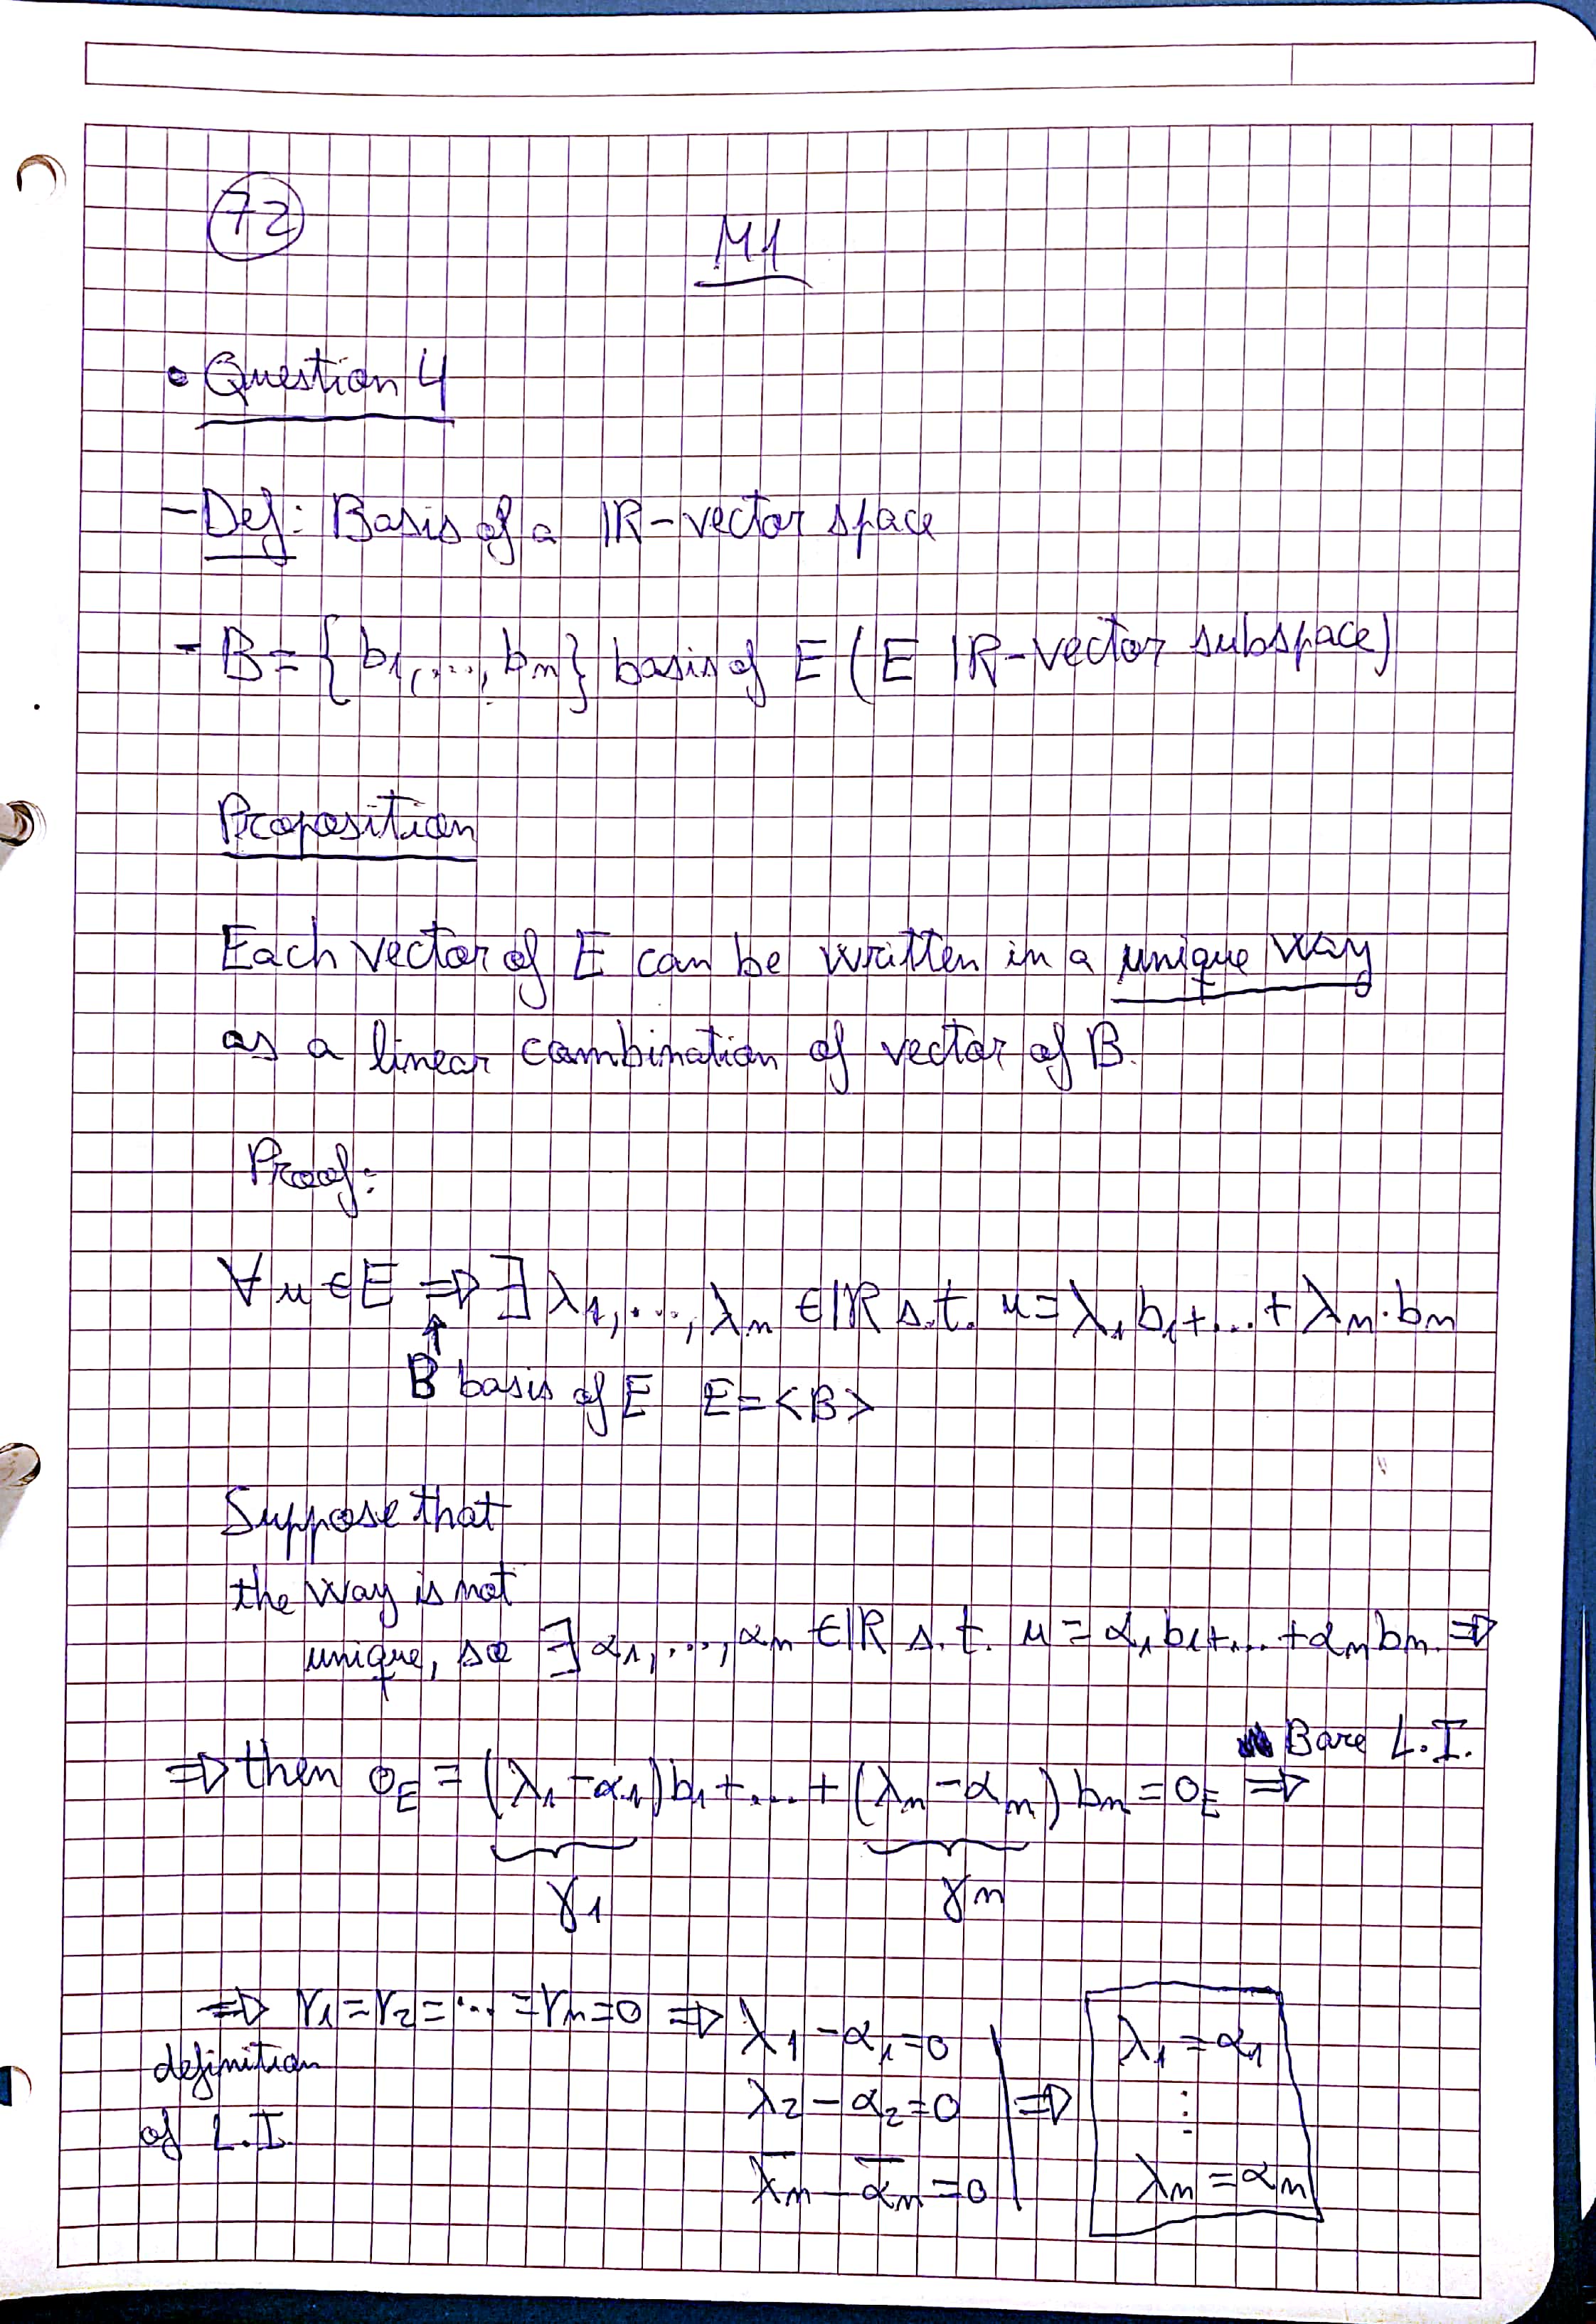 72
M1
• Question 4
- Def: Basis of a ℝ-vector space
- B = {b₁,...,bₙ} basis of E (E ℝ-vector subspace)
Proposition
Each vector of E can be written in a unique way
as a linear combination of vector of B.
Proof:
∀u∈E ⇒ ∃λ₁,...,λₙ ∈ℝ s.t. u=λ₁b₁+...+λₙ·bₙ
↑
B basis of E E=<B>
Suppose that
the way is not
unique, so ∃α₁,...,αₙ ∈ℝ s.t. u=α₁b₁+...+αₙbₙ ⇒
B are L.I.
⇒ then 0_E = (λ₁-α₁)b₁+...+(λₙ-αₙ)bₙ=0_E ⇒
γ₁ γₙ
⇒ γ₁=γ₂=...=γₙ=0 ⇒ λ₁-α₁=0 λ₁=α₁
definition
λ₂-α₂=0 ⇒ ⋮
of L.I.
λₙ-αₙ=0 λₙ=αₙ